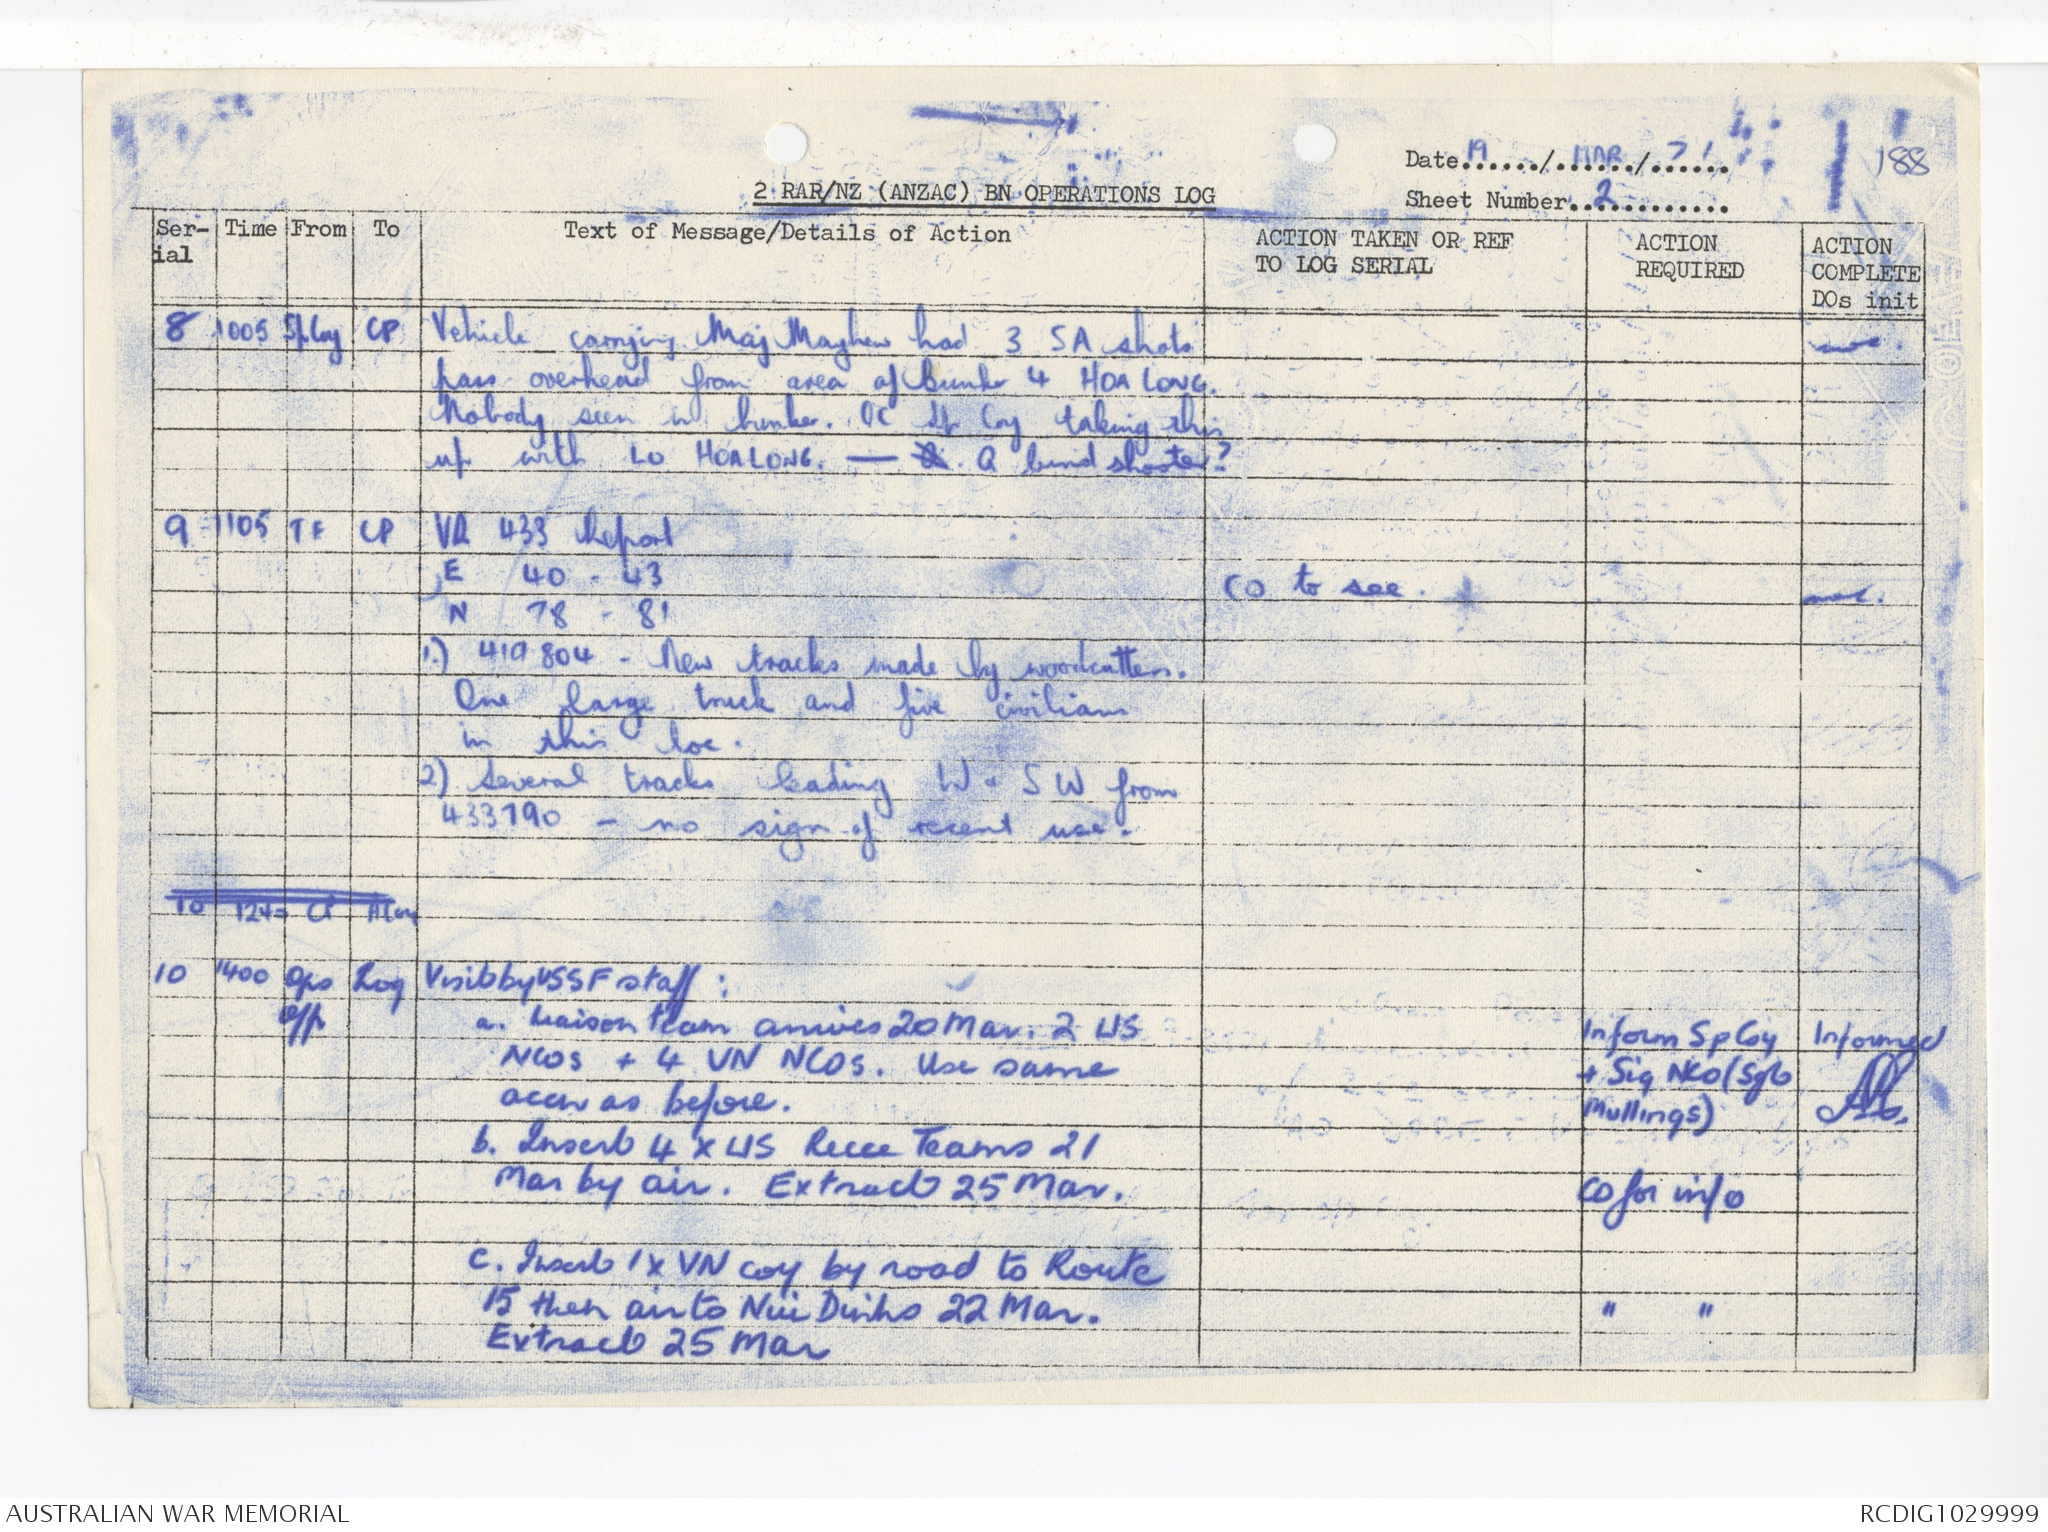 Date 19 / MAR / 71
188
2 RAR/NZ (ANZAC) BN OPERATIONS LOG
Sheet Number 2
Ser-ial Time From To Text of Message/Details of Action ACTION TAKEN OR REF TO LOG SERIAL ACTION REQUIRED ACTION COMPLETE DOs init
8 1005 SpCoy CP Vehicle carrying Maj Mayhew had 3 SA shots
pass overhead from area of bunker 4 HOA LONG.
Nobody seen in bunker. OC Sp Coy taking this
up with LO HOA LONG. — A bund shooter?
9 1105 TF CP VR 433 Report
E 40 - 43
CO to see.
N 78 - 81
1.) 419804 - New tracks made by woodcutters.
One large truck and five civilians
in this loc.
2) Several tracks leading W + SW from
433790 - no sign of recent use.
10 1245 CP A Coy
10 1400 Ops Log Visit by USSF staff :
Offr
a. Liaison team arrives 20 Mar. 2 US Inform Sp Coy Informed
NCOs + 4 VN NCOs. Use same + Sig NCO (Sgt
accn as before. Mullings)
b. Insert 4 x US Recce Teams 21
Mar by air. Extract 25 Mar. CO for info
c. Insert 1 x VN coy by road to Route
15 then air to Nui Dinhs 22 Mar. " "
Extract 25 Mar
AUSTRALIAN WAR MEMORIAL
RCDIG1029999